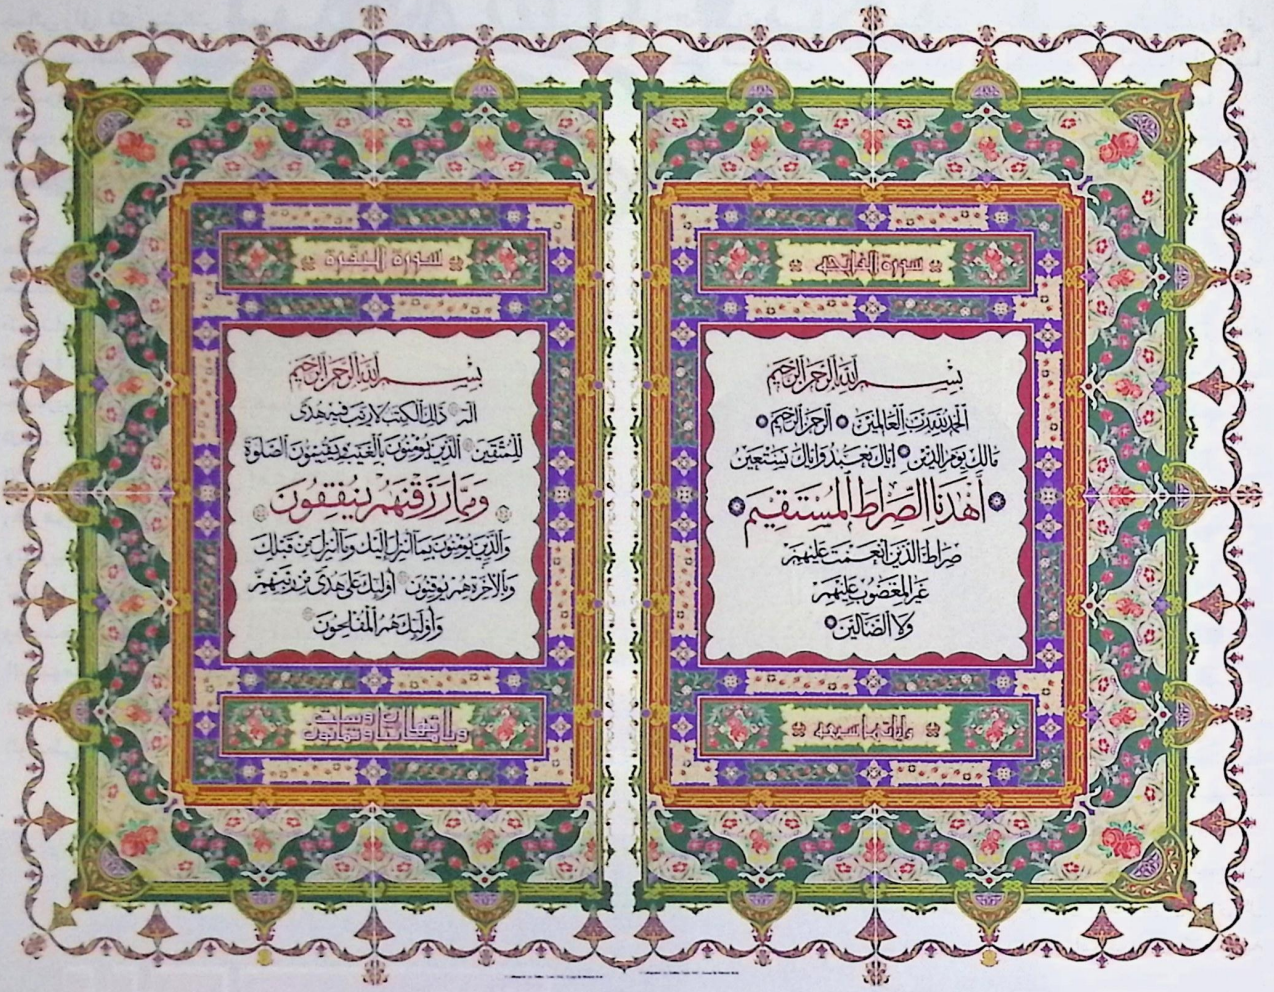 سورة الفاتحه
بسم الله الرحمن الرحيم
الحمد لله رب العالمين الرحمن الرحيم
مالك يوم الدين إياك نعبد وإياك نستعين
اهدنا الصراط المستقيم
صراط الذين أنعمت عليهم
غير المغضوب عليهم
ولا الضالين
واياتها سبعه
سورة البقرة
بسم الله الرحمن الرحيم
الم ذلك الكتب لا ريب فيه هدى
للمتقين الذين يؤمنون بالغيب ويقيمون الصلوة
ومما رزقنهم ينفقون
والذين يؤمنون بما أنزل إليك وما أنزل من قبلك
وبالآخرة هم يوقنون أولئك على هدى من ربهم
وأولئك هم المفلحون